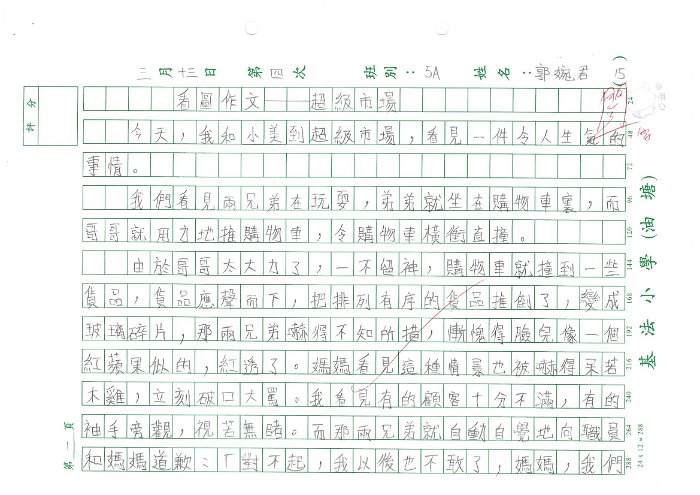 三月十三日 第四次 班別：5A 姓名：郭婉君 (15)
評分
看圖作文——超級市場
今天，我和小美到超級市場，看見一件令人生氣的
事情。
我們看見兩兄弟在玩耍，弟弟就坐在購物車裏，而
哥哥就用力地推購物車，令購物車橫衝直撞。
由於哥哥太大力了，一不留神，購物車就撞到一些
貨品，貨品應聲而下，把排列有序的貨品推倒了，變成
玻璃碎片，那兩兄弟嚇得不知所措，慚愧得臉兒像一個
紅蘋果似的，紅透了。媽媽看見這種情景也被嚇得呆若
木雞，立刻破口大罵。我看見有的顧客十分不滿，有的
袖手旁觀，視若無睹。而那兩兄弟就自動自覺地向職員
和媽媽道歉：「對不起，我以後也不敢了，媽媽，我們
24
48
72
96
120
144
168
192
216
240
264
288
24 x 12 = 288
基法小學(油塘)
第一頁